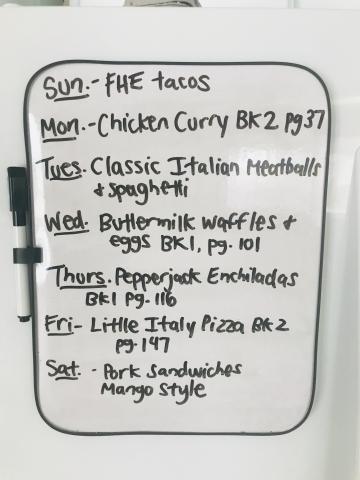 Sun.- FHE tacos
Mon.- Chicken Curry BK2 pg37
Tues. Classic Italian Meatballs
+ spaghetti
Wed. Buttermilk waffles +
eggs BK1, pg. 101
Thurs. Pepperjack Enchiladas
BK1 pg. 116
Fri- Little Italy Pizza BK2
pg. 147
Sat. - Pork Sandwiches
Mango Style